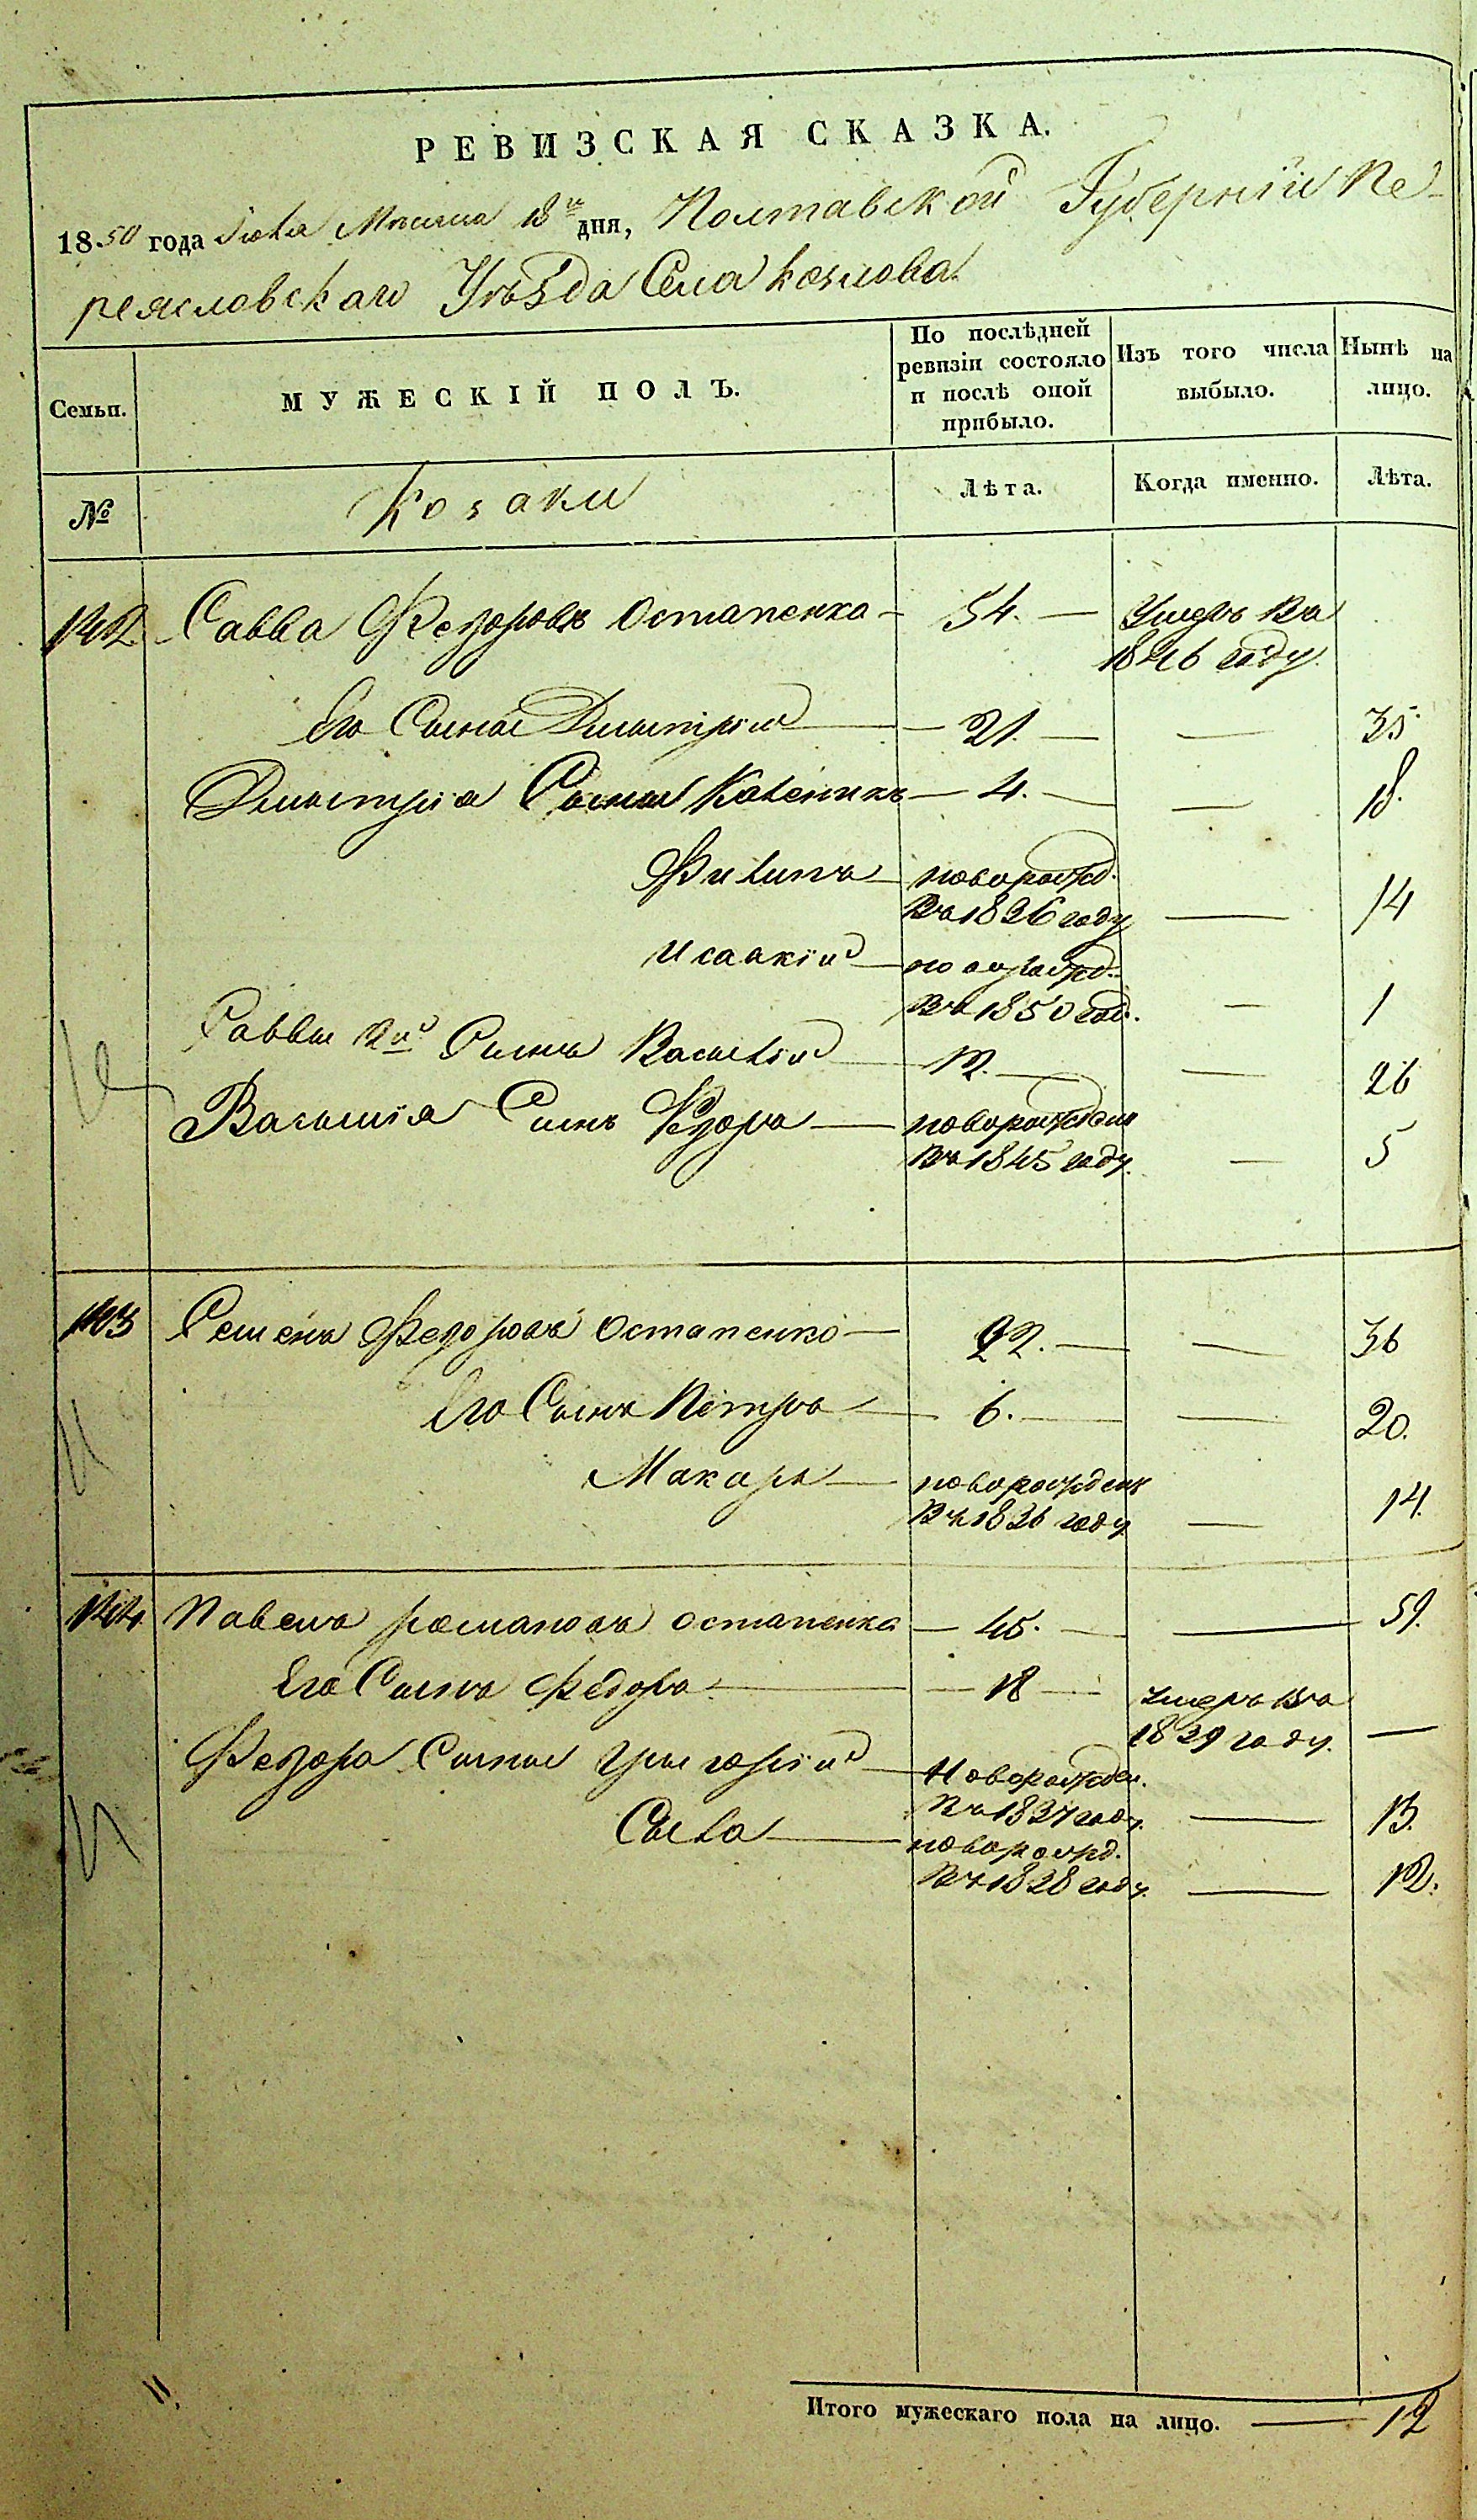 РЕВИЗСКАЯ СКАЗКА.
1850 года Июля Месяца 18го дня, Полтавской Губернии Пе-
реясловскаго Уѣзда Села Козлова
Семьи.
МУЖЕСКІЙ ПОЛЪ.
По послѣдней ревизіи состояло и послѣ оной прибыло.
Изъ того числа выбыло.
Нынѣ на лицо.
№
Козаки
Лѣта.
Когда именно.
Лѣта.
142 Савва Федоровъ Остапенко 54. Умеръ въ
1846 году.
Его Сынъ Дмитрій 21. 35
Дмитрія Сынъ Каленикъ 4. 18.
Филипъ новорожд.
въ 1836 году 14
Исаакій новорожд.
въ 1850 год. 1
Саввы 2й Сынъ Василій 12. 26
Василія Сынъ Федоръ новорожден
въ 1845 году. 5
143 Семенъ Федоровъ Остапенко 22. 36
Его Сынъ Петръ 6. 20.
Макаръ новорожденъ
въ 1836 году 14.
144 Павелъ Романовъ Остапенко 45. 59.
Его Сынъ Федоръ 18 умеръ въ
1839 году.
Федора Сынъ Григорій Новорожден.
въ 1837 году. 13.
Сава новорожд.
въ 1838 году. 12.
Итого мужескаго пола на лицо. 12